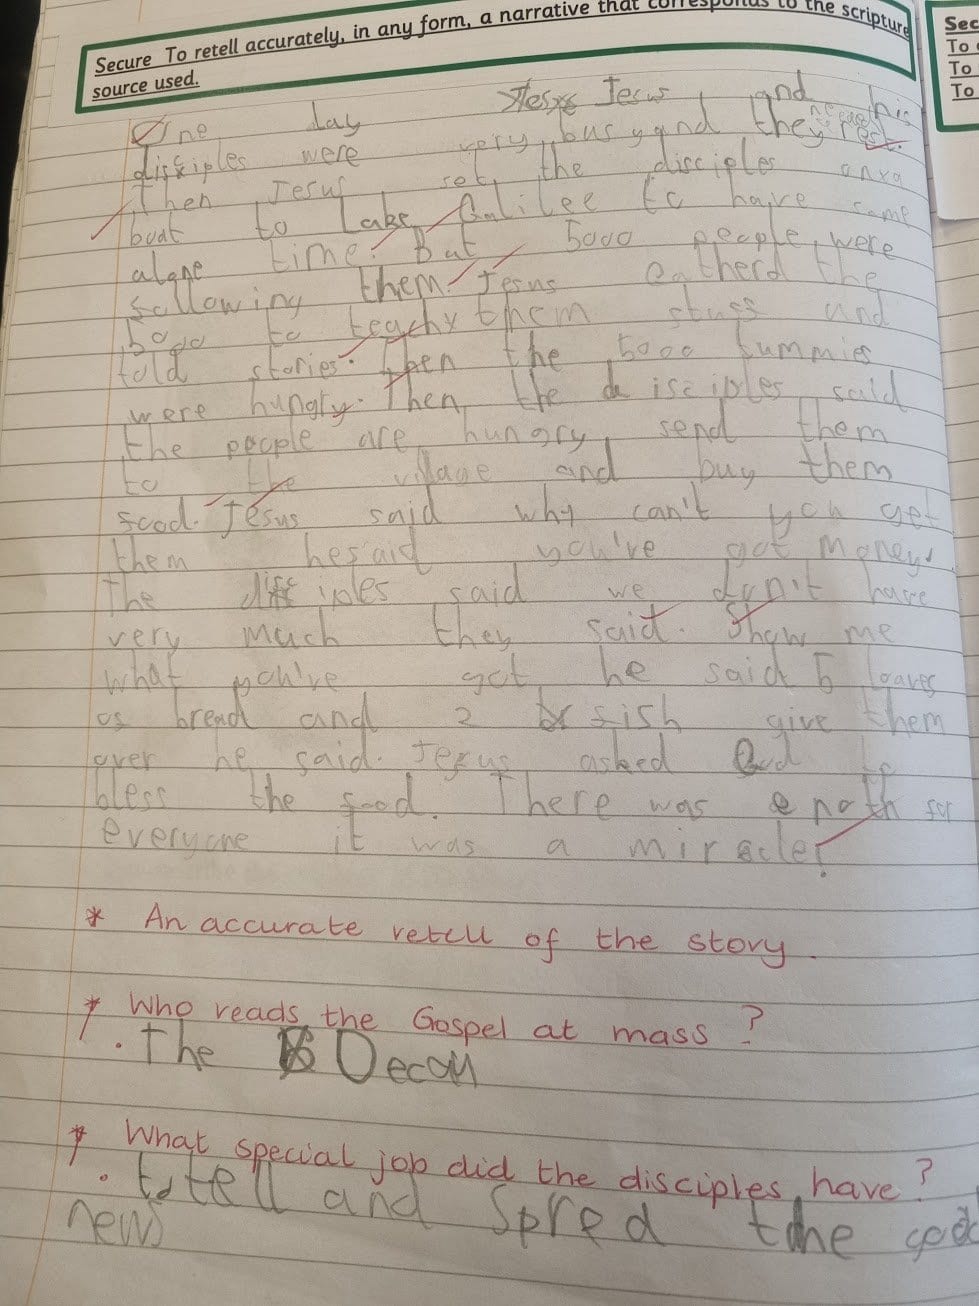 Secure To retell accurately, in any form, a narrative that corresponds to the scripture
source used.
Sec
To
To
To
One day Jesus and his
disciples were very busy and they need rest.
Then Jesus set the disciples on a
boat to Lake Galilee to have some
alone time. But 5000 people were
following them. Jesus gatherd the
5000 to teach them stuff and
told stories. Then the 5000 tummies
were hungry. Then the disciples said
the people are hungry send them
to the village and buy them
food. Jesus said why can't you get
them he said you've got money.
The disciples said we don't have
very much they said. Show me
what you've got he said 5 loaves
of bread and 2 fish give them
over he said. Jesus asked God to
bless the food. There was enoth for
everyone it was a miracle!
* An accurate retell of the story.
* Who reads the Gospel at mass?
. The Decon
* What special job did the disciples have?
. to tell and spred the god
news